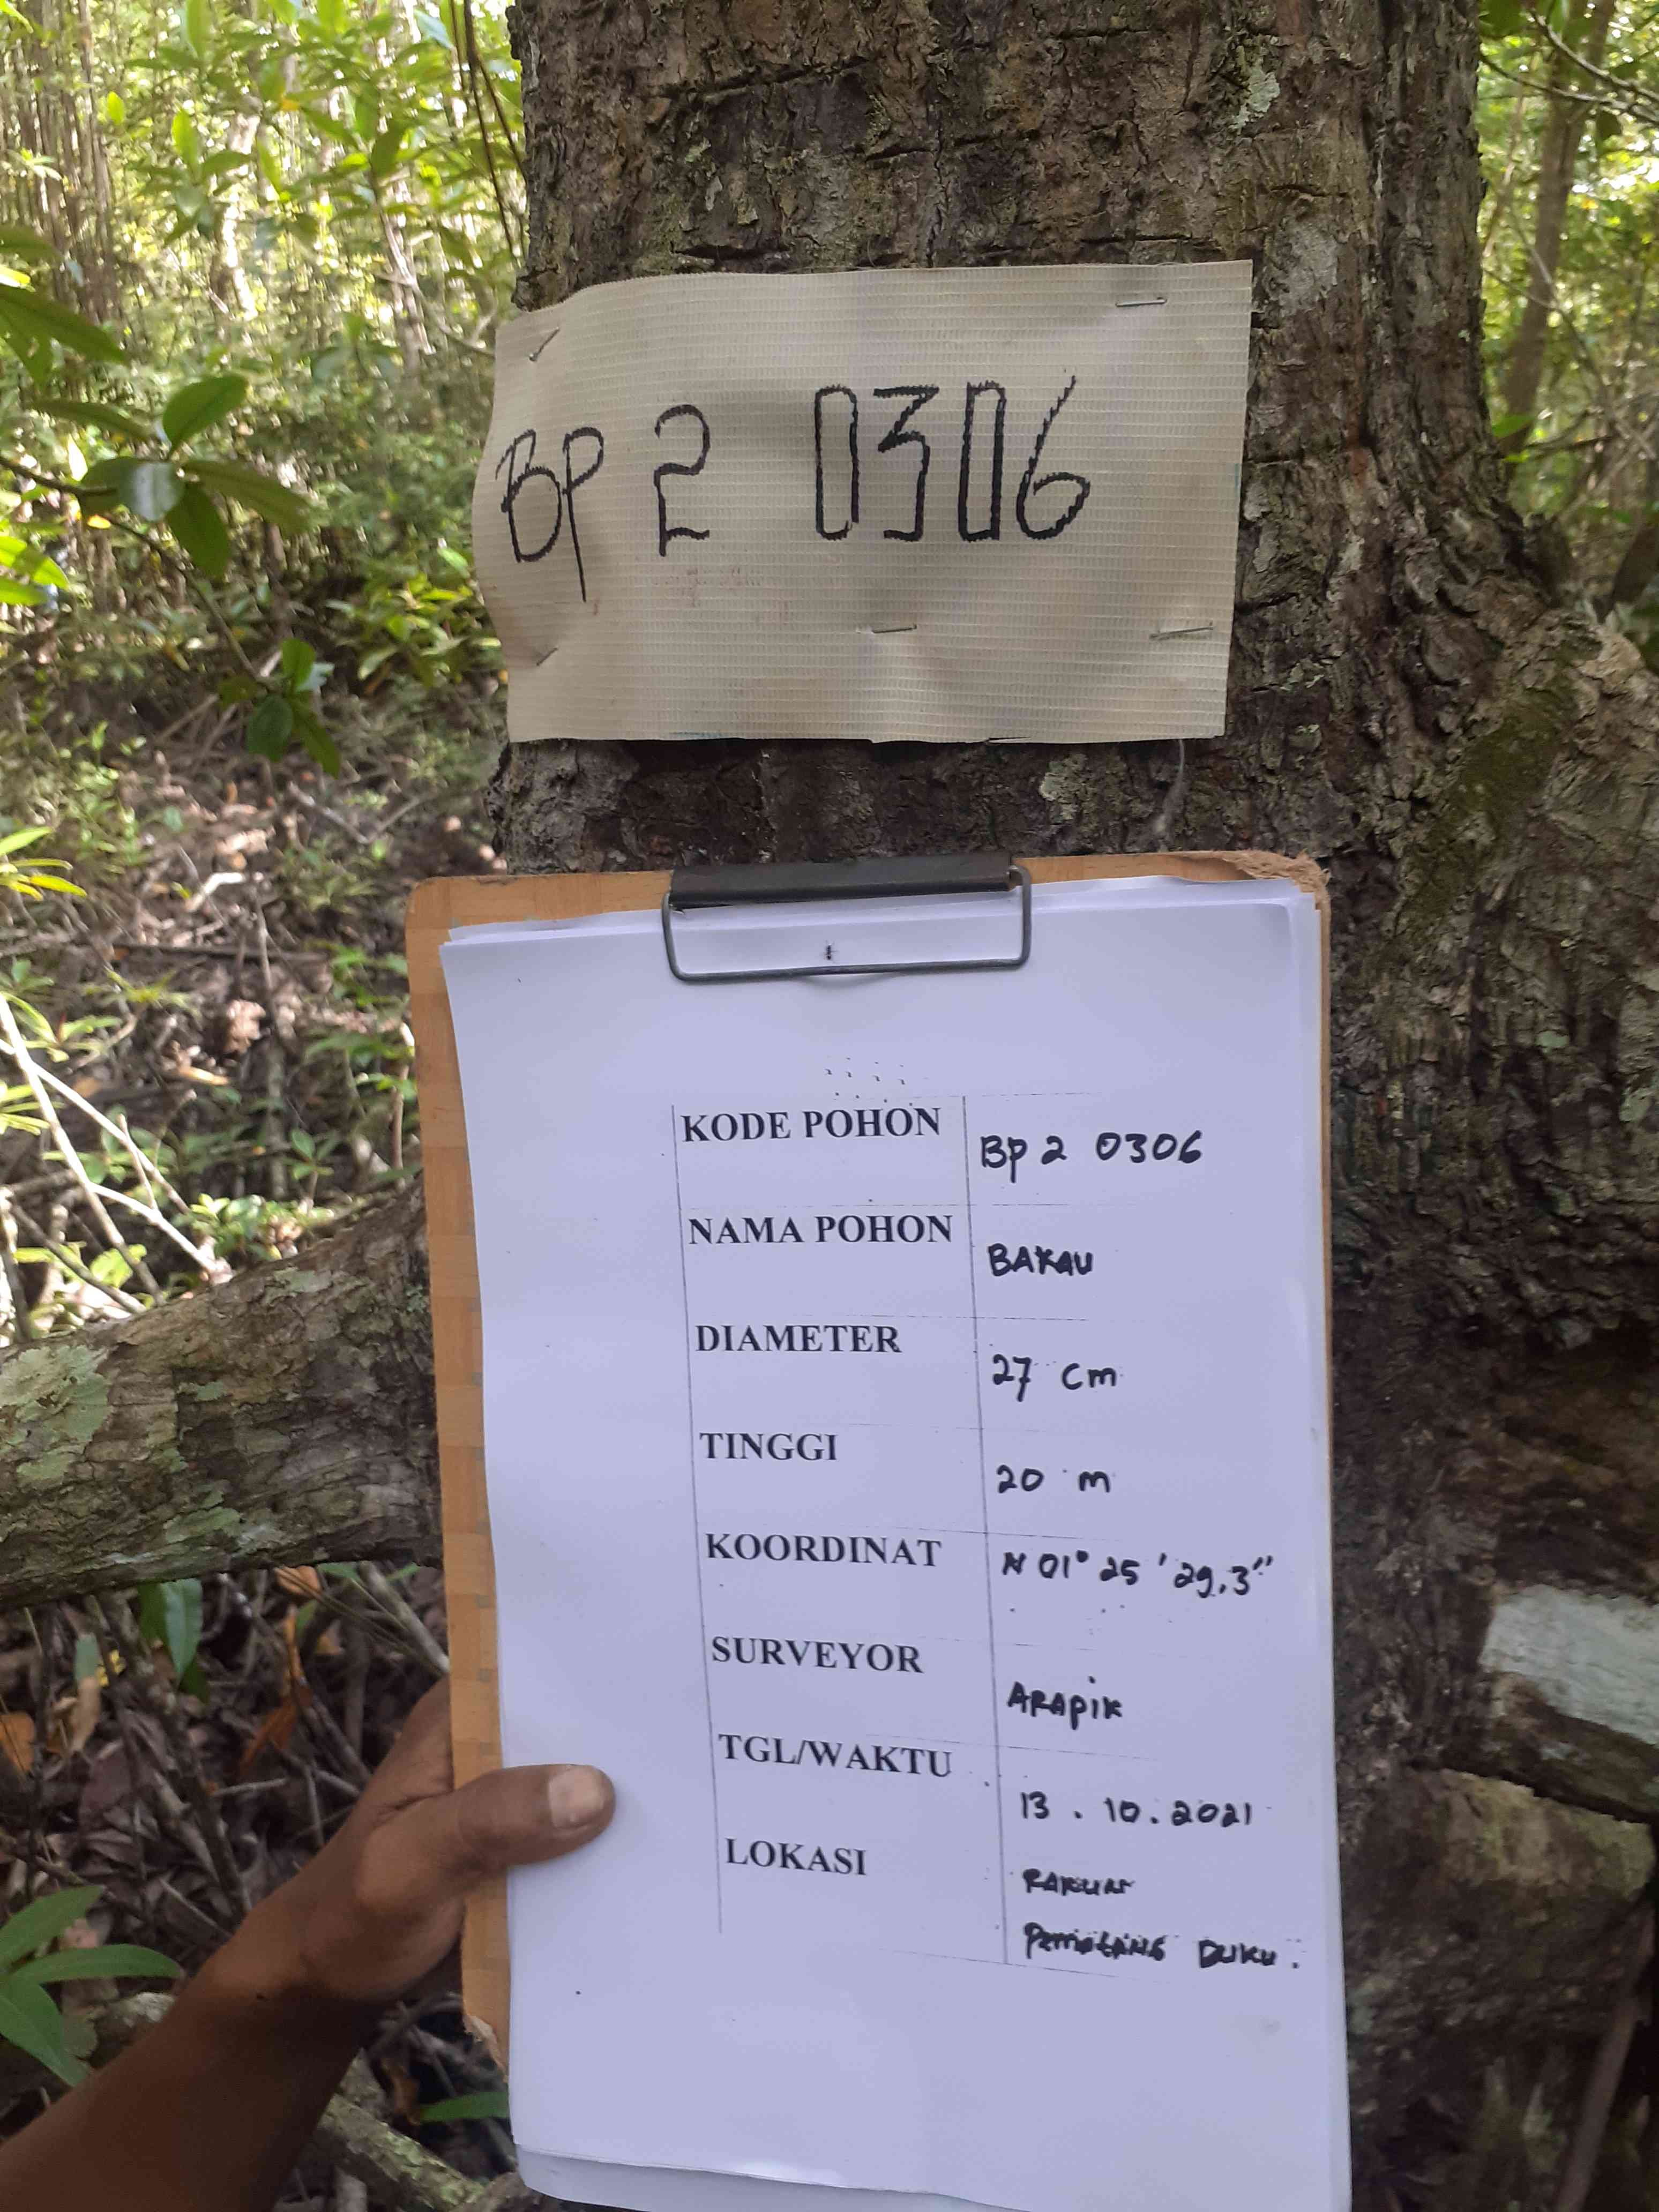 BP 2 0306
KODE POHON BP 2 0306
NAMA POHON BAKAU
DIAMETER 27 cm
TINGGI 20 m
KOORDINAT N 01° 25 ' 29,3"
SURVEYOR ARAPIK
TGL/WAKTU 13 . 10 . 2021
LOKASI
PEMATANG DUKU .